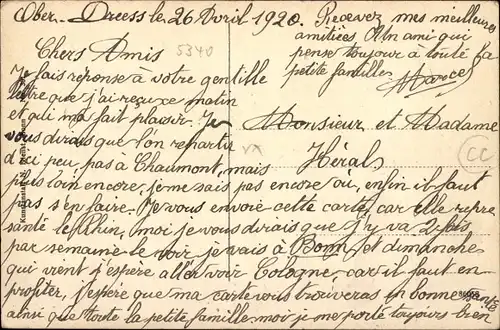 Ober - Dreess le 26 Avril 1920.
Chers Amis
5340
Je fais reponse à votre gentille
lettre que j'ai reçuxe matin
et qui ma fait plaisir. Je
vous dirais que l'on repartir
d'ici peu pas à Chaumont, mais
plus loin encore, je me sais pas encore où, enfin il faut
pas s'en faire. Je vous envoie cette carte, car elle repre
sente le Rhin, moi je vous dirais que j'y va 2 fois
par semaine le soir, je vais à Bonn, et dimanche
qui vient j'espère aller voir Cologne car il faut en
profiter, j'espère que ma carte vous trouveras en bonne santé
ainsi que toute la petite famille moi je me porte toujours bien
Recevez mes meilleures
amitiées Un ami qui
pense toujour à toute la
petite famille
Marcel
Monsieur et Madame
Hérals
CC